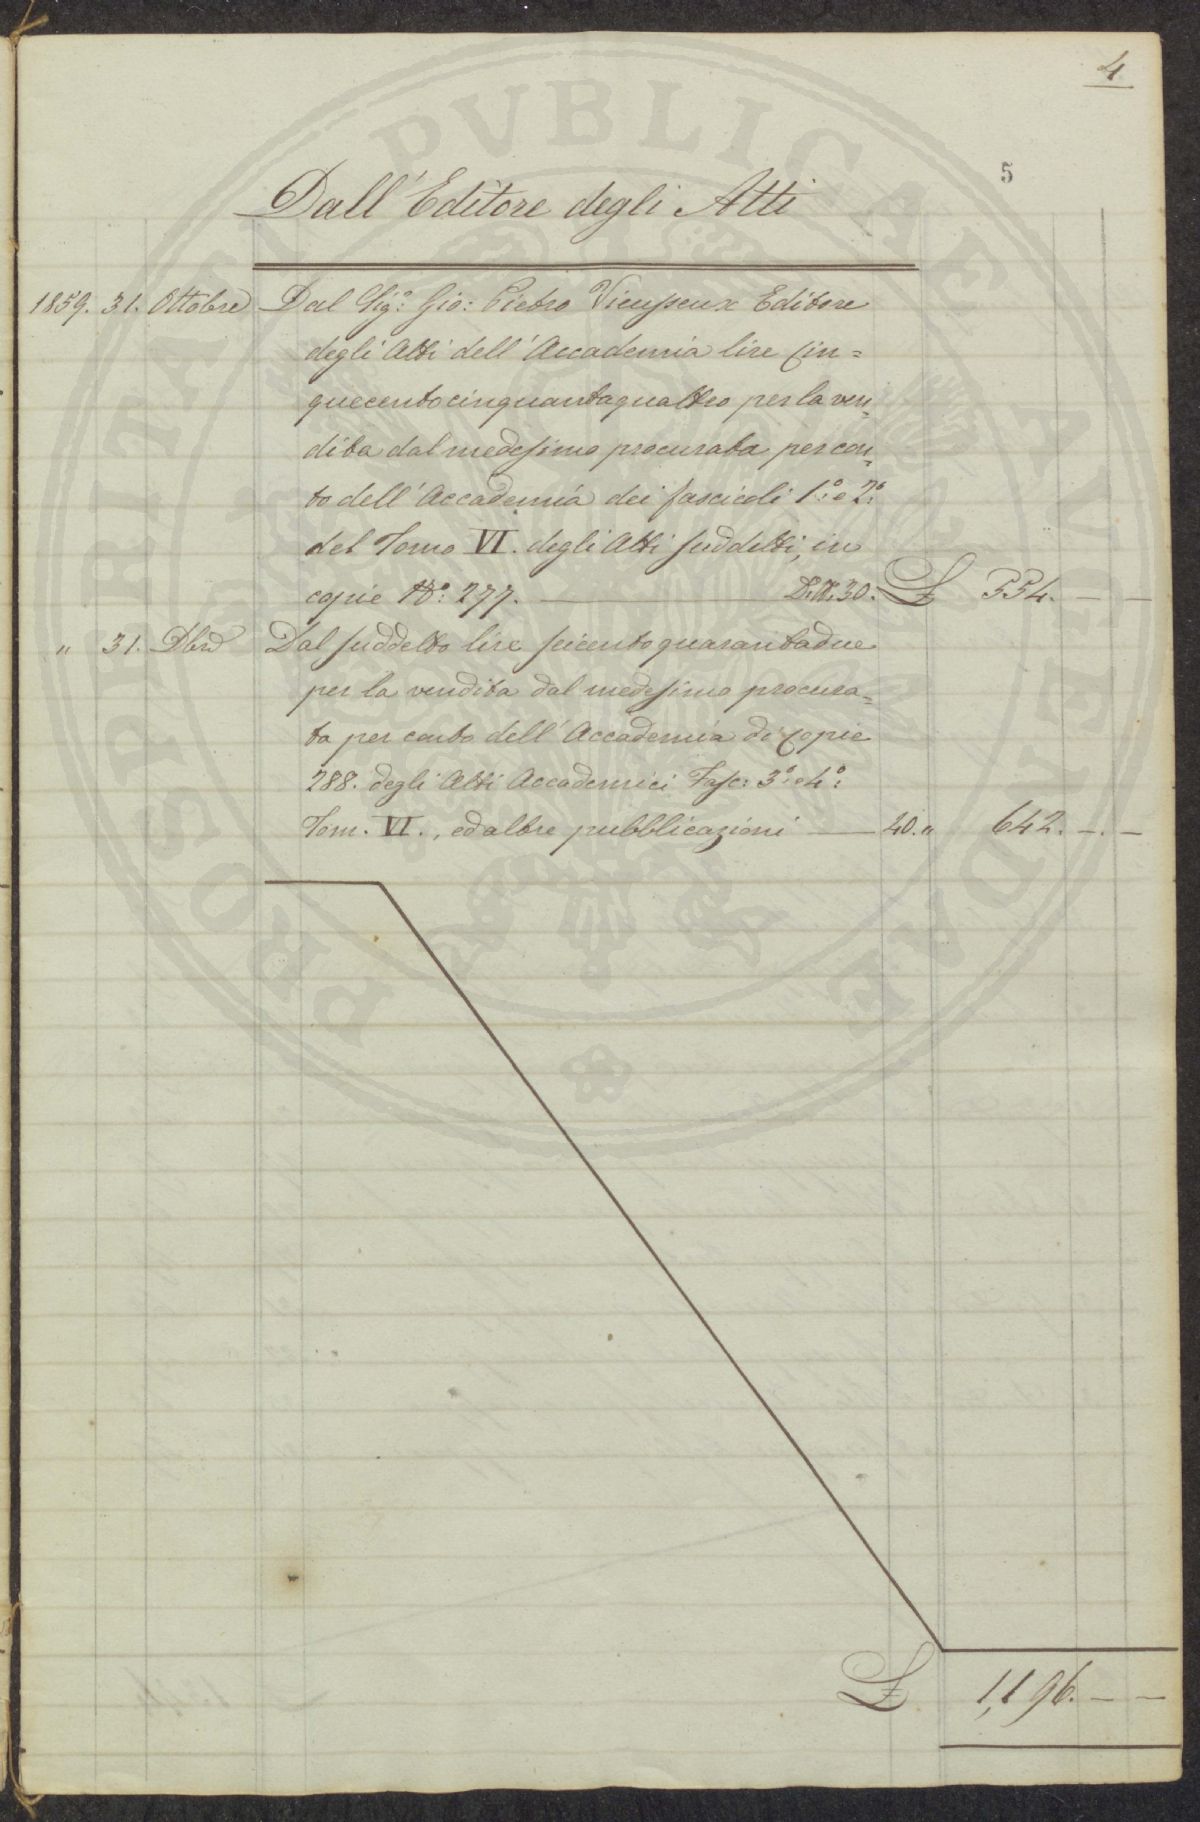 4
5
Dall'Editore degli Atti
1859. 31. Ottobre Dal Sig.º Gio: Pietro Vieusseux Editore
degli Atti dell'Accademia lire Cin=
quecentocinquantaquattro per la ven=
dita dal medesimo procurata per con=
to dell'Accademia dei fascicoli 1.º e 2.º
del Tomo VI. degli Atti suddetti, in
copie Nº: 277. D.N. 30. £ 554. — —
" 31. Dbre Dal suddetto lire seicentoquarantadue
per la vendita dal medesimo procura=
ta per conto dell'Accademia di Copie
288. degli Atti Accademici Fasc: 3º: e 4º:
Tom. VI., ed altre pubblicazioni — 40. " 642. — —
£ 1,196. — —
PROSPERITATI PVBLICAE AVGENDAE